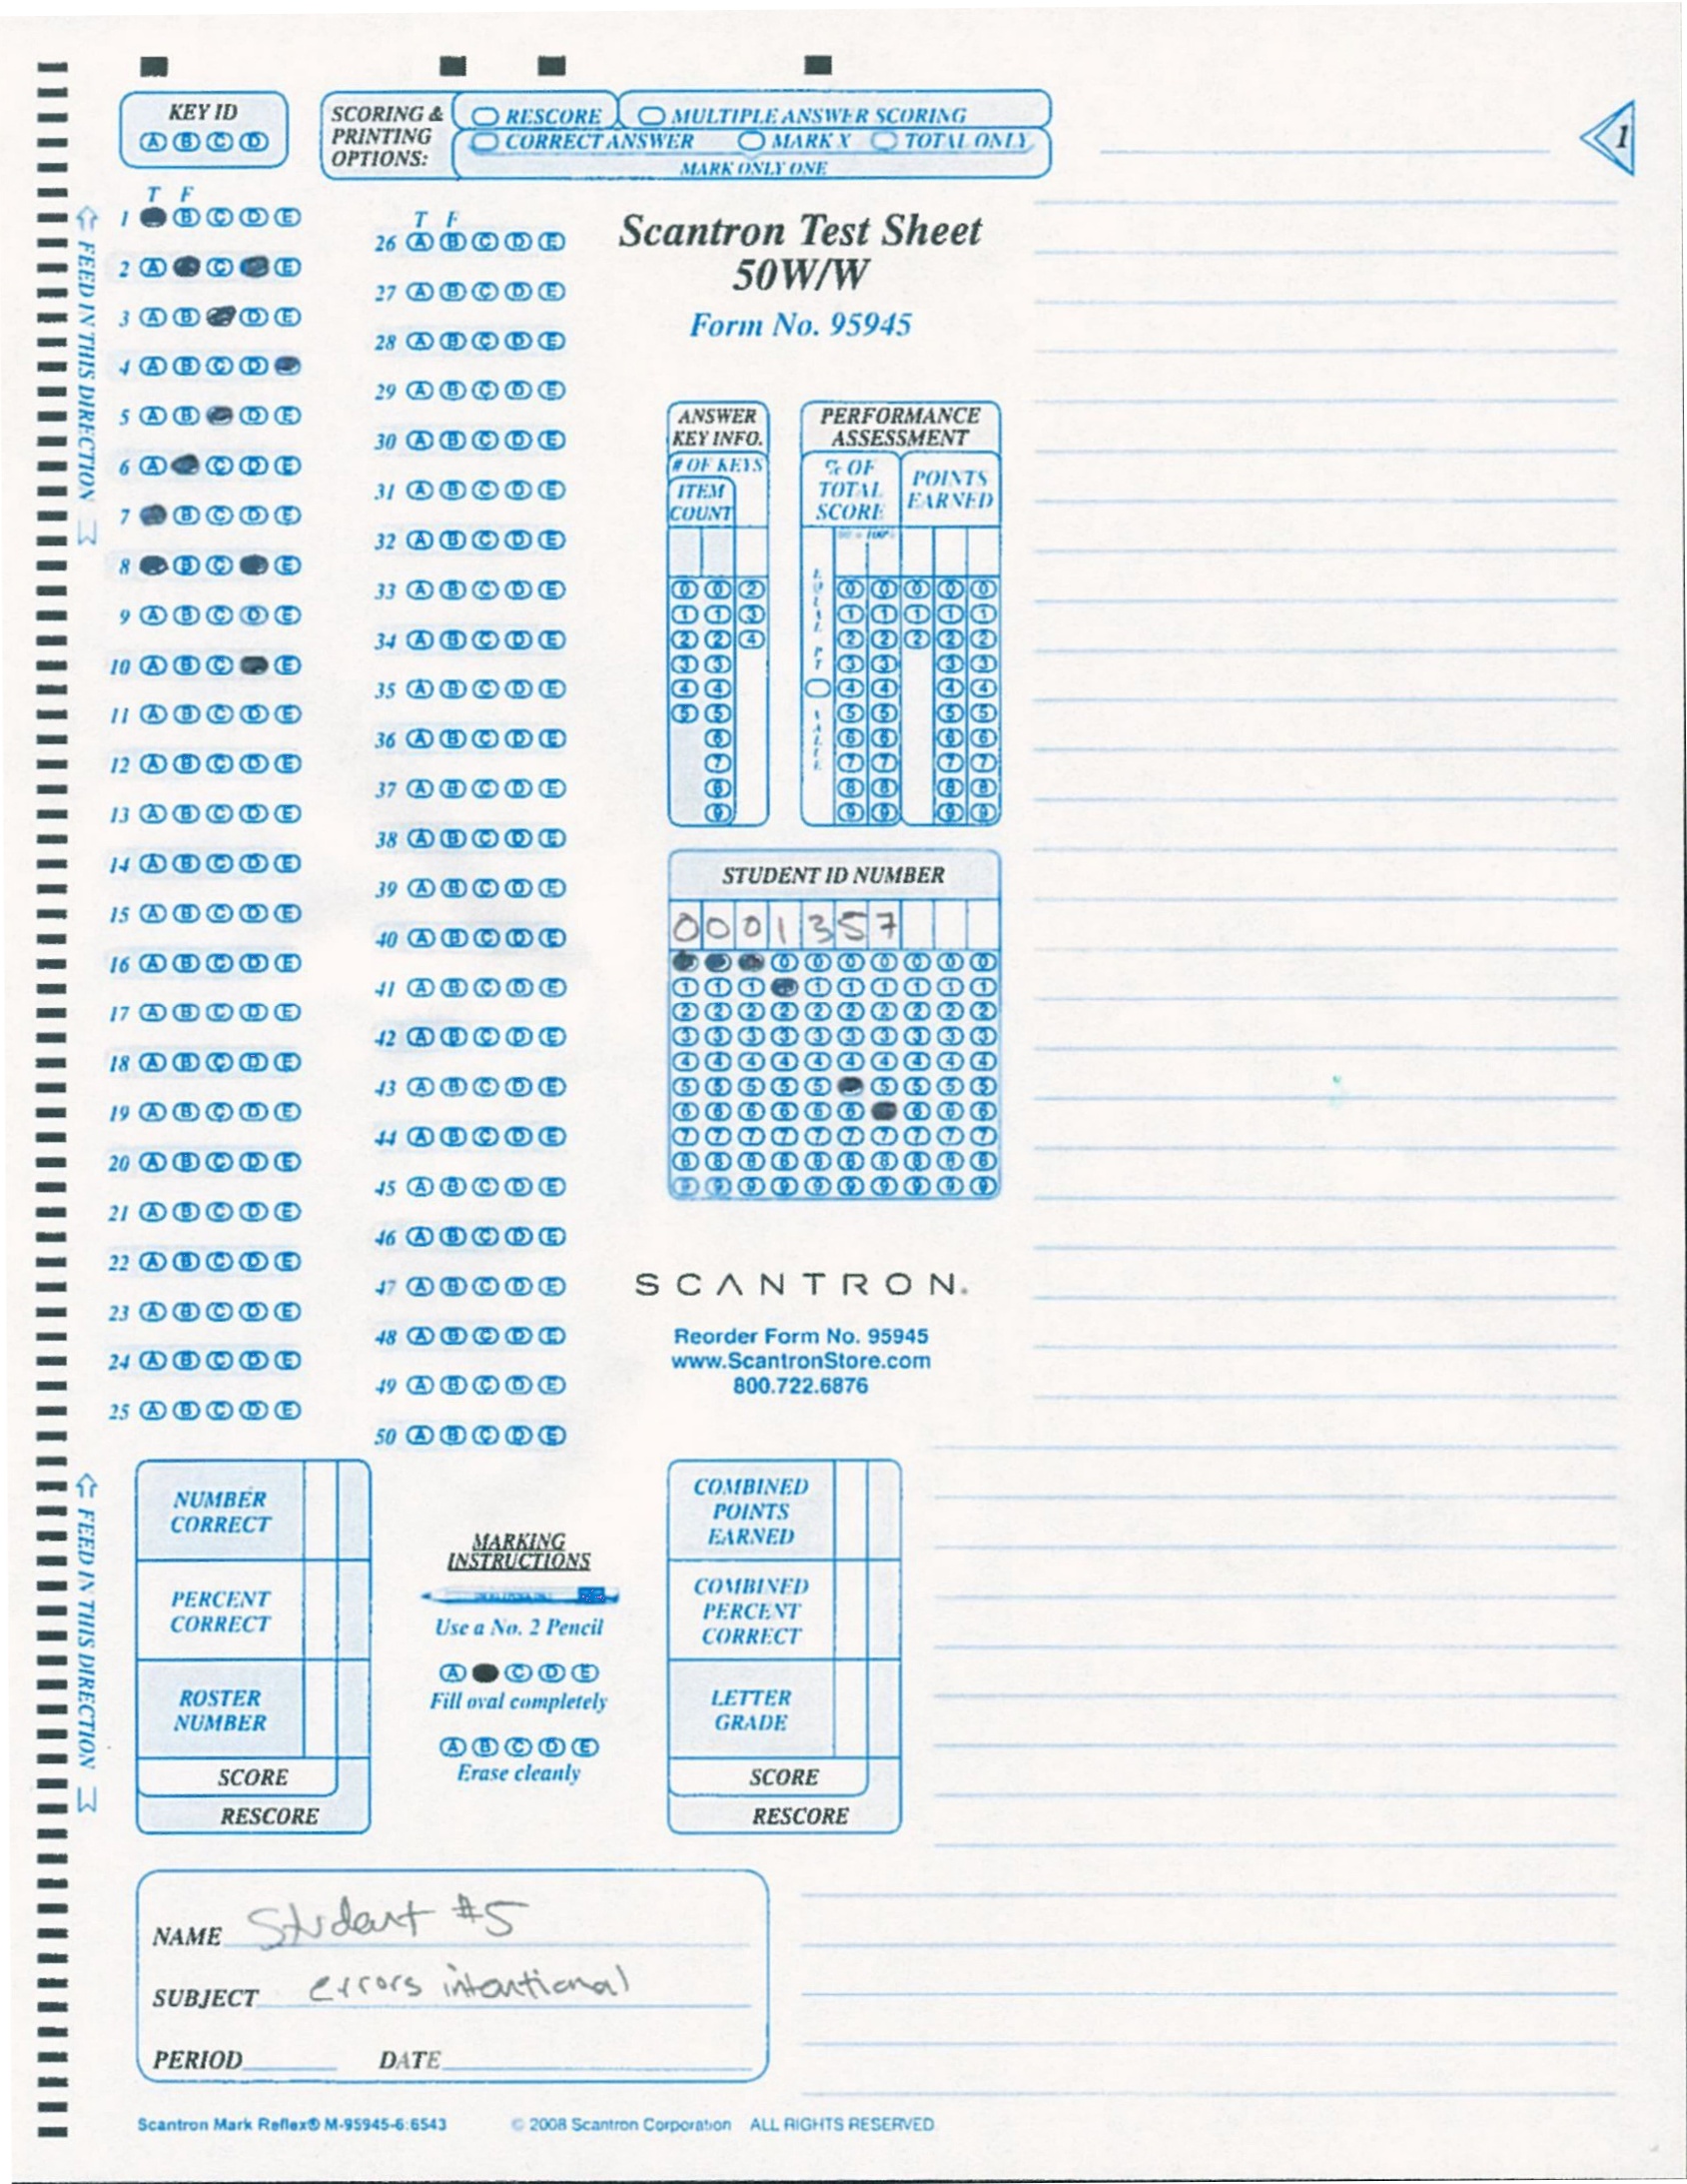 KEY ID
A B C D
SCORING & PRINTING OPTIONS:
RESCORE
MULTIPLE ANSWER SCORING
CORRECT ANSWER
MARK X
TOTAL ONLY
MARK ONLY ONE
1
T F
FEED IN THIS DIRECTION
1 B C D E
2 A C E
3 A B D E
4 A B C D
5 A B D E
6 A C D E
7 B C D E
8 B C E
9 A B C D E
10 A B C E
11 A B C D E
12 A B C D E
13 A B C D E
14 A B C D E
15 A B C D E
16 A B C D E
17 A B C D E
18 A B C D E
19 A B C D E
20 A B C D E
21 A B C D E
22 A B C D E
23 A B C D E
24 A B C D E
25 A B C D E
T F
26 A B C D E
27 A B C D E
28 A B C D E
29 A B C D E
30 A B C D E
31 A B C D E
32 A B C D E
33 A B C D E
34 A B C D E
35 A B C D E
36 A B C D E
37 A B C D E
38 A B C D E
39 A B C D E
40 A B C D E
41 A B C D E
42 A B C D E
43 A B C D E
44 A B C D E
45 A B C D E
46 A B C D E
47 A B C D E
48 A B C D E
49 A B C D E
50 A B C D E
Scantron Test Sheet
50W/W
Form No. 95945
ANSWER
KEY INFO.
# OF KEYS
ITEM
COUNT
0 0 2
1 1 3
2 2 4
3 3
4 4
5 5
6
7
8
9
PERFORMANCE
ASSESSMENT
% OF
TOTAL
SCORE
POINTS
EARNED
00 = 100%
EQUAL PT VALUE
0 0 0 0 0
1 1 1 1 1
2 2 2 2 2
3 3 3 3
4 4 4 4
5 5 5 5
6 6 6 6
7 7 7 7
8 8 8 8
9 9 9 9
STUDENT ID NUMBER
0 0 0 1 3 5 7
0 0 0 0 0 0 0
1 1 1 1 1 1 1 1 1
2 2 2 2 2 2 2 2 2 2
3 3 3 3 3 3 3 3 3 3
4 4 4 4 4 4 4 4 4 4
5 5 5 5 5 5 5 5 5
6 6 6 6 6 6 6 6 6
7 7 7 7 7 7 7 7 7 7
8 8 8 8 8 8 8 8 8 8
9 9 9 9 9 9 9 9 9 9
SCANTRON.
Reorder Form No. 95945
www.ScantronStore.com
800.722.6876
FEED IN THIS DIRECTION
NUMBER
CORRECT
PERCENT
CORRECT
ROSTER
NUMBER
SCORE
RESCORE
MARKING
INSTRUCTIONS
Use a No. 2 Pencil
A C D E
Fill oval completely
A B C D E
Erase cleanly
COMBINED
POINTS
EARNED
COMBINED
PERCENT
CORRECT
LETTER
GRADE
SCORE
RESCORE
NAME Student #5
SUBJECT errors intentional
PERIOD DATE
Scantron Mark Reflex® M-95945-6:6543 © 2008 Scantron Corporation ALL RIGHTS RESERVED